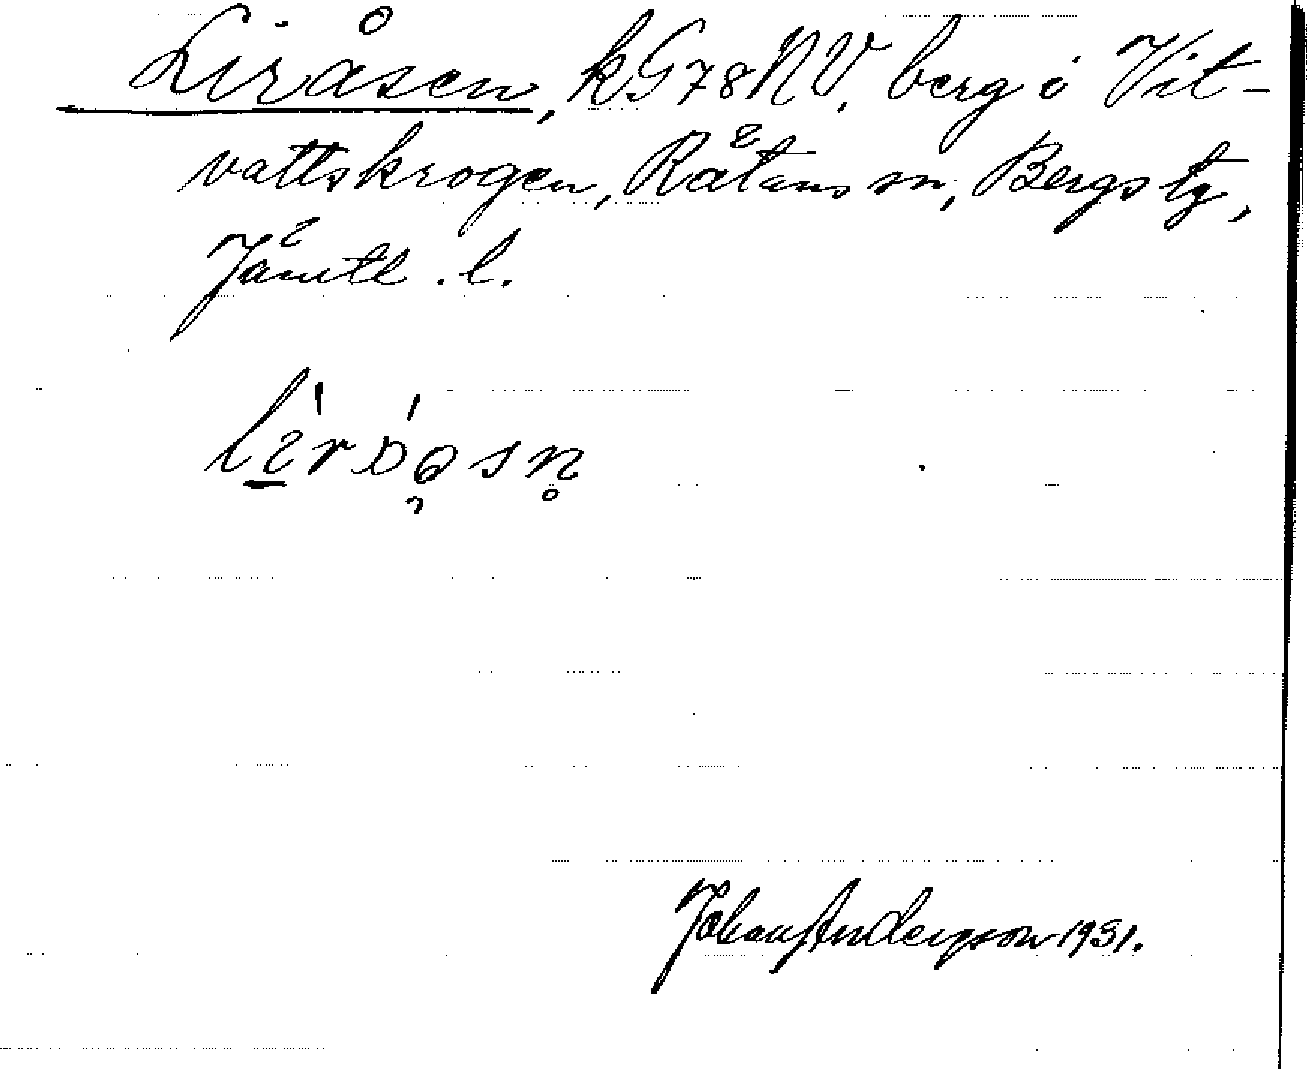 Liråsen, kG78NV. berg i Vit-
vattskrogen, Rätans sn, Bergs tg,
Jämtl. l.
Johan Anderson 1931.